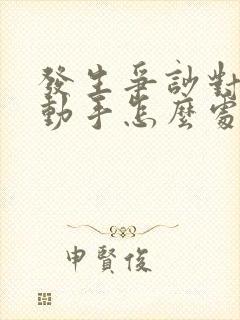 發生爭訟對
動手怎麼處
申賢俊